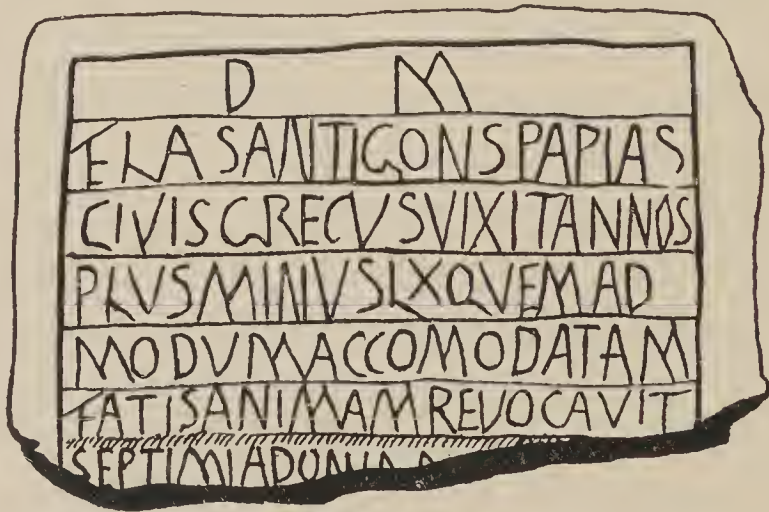 D M
FLASANTIGONSPAPIAS
CIVISGRECVSVIXITANNOS
PLVSMINVSLXQVEMAD
MODVMACCOMODATAM
FATISANIMAMREVOCAVIT
SEPTIMIADO